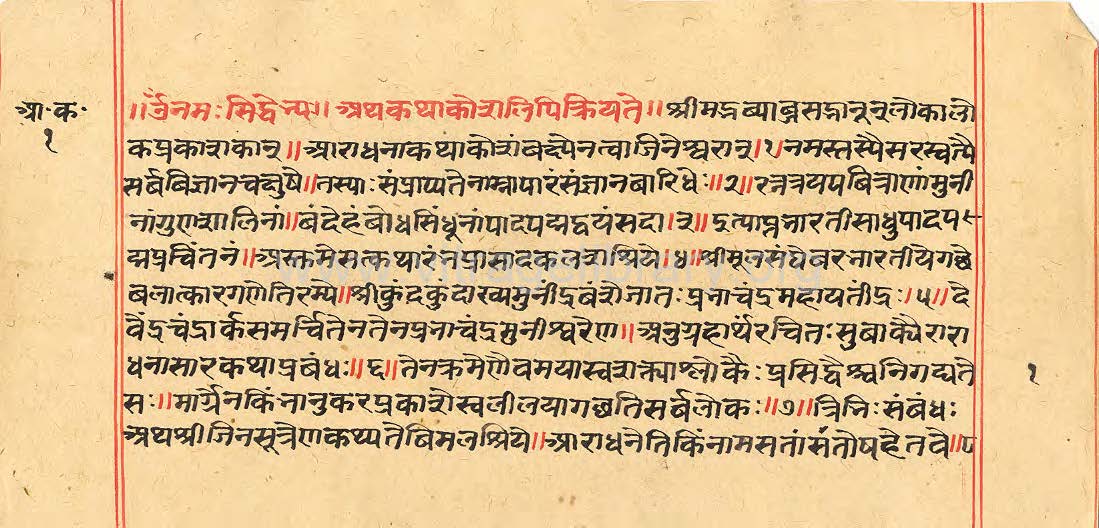 आ॰ क॰
१
॥ ॐनमः सिद्धेभ्यः॥ अथकथाकोशलिपिक्रियते॥ श्रीमद्भव्याब्जसद्भानून्लोकालो
कप्रकाशकान्॥ आराधनाकथाकोशं बक्ष्येनत्वाजिनेश्वरान्।१। नमस्तस्यैसरस्वत्यै
सर्बबिज्ञानचक्षुषे॥ तस्याः संप्राप्यतेनाम्नापारंसंज्ञानबारिधेः॥२॥ रत्नत्रयपबित्राणांमुनी
नांगुणशालिनां॥ बंदेहंबोधसिंधूनांपादपद्मद्वयंसदा।३॥ इत्याप्तभारतीसाधुपादप-
द्मप्रचिंतनं॥ अस्तुमेसत्कथारंभप्रासादकलशश्रिये।४॥ श्रीमूलसंघेबरभारतीयेगछे
बलात्कारगणेतिरम्ये॥ श्रीकुंदकुंदाख्यमुनींद्रबंशेजातः प्रभाचंद्रमहायतींद्रः।५॥ दे
वेंद्रचंद्रार्कसमर्च्चितेनतेनप्रभाचंद्रमुनीश्वरेण॥ अनुग्रहार्थंरचितः सुबाक्यैरारा
धनासारकथाप्रबंधः॥६॥ तेनक्रमेणैवमयास्वशक्त्याश्लोकैः प्रसिद्धैश्चनिगद्यते
सः॥ मार्ग्गेनकिंभानुकरप्रकाशेस्वलीलयागछतिसर्बलोकः॥७॥ त्रिभिः संबंधः
अथश्रीजिनसूत्रेणकथ्यतेबिमलश्रिये॥ आराधनेतिकिंनामसतांसंतोषहेतवे॥८
१